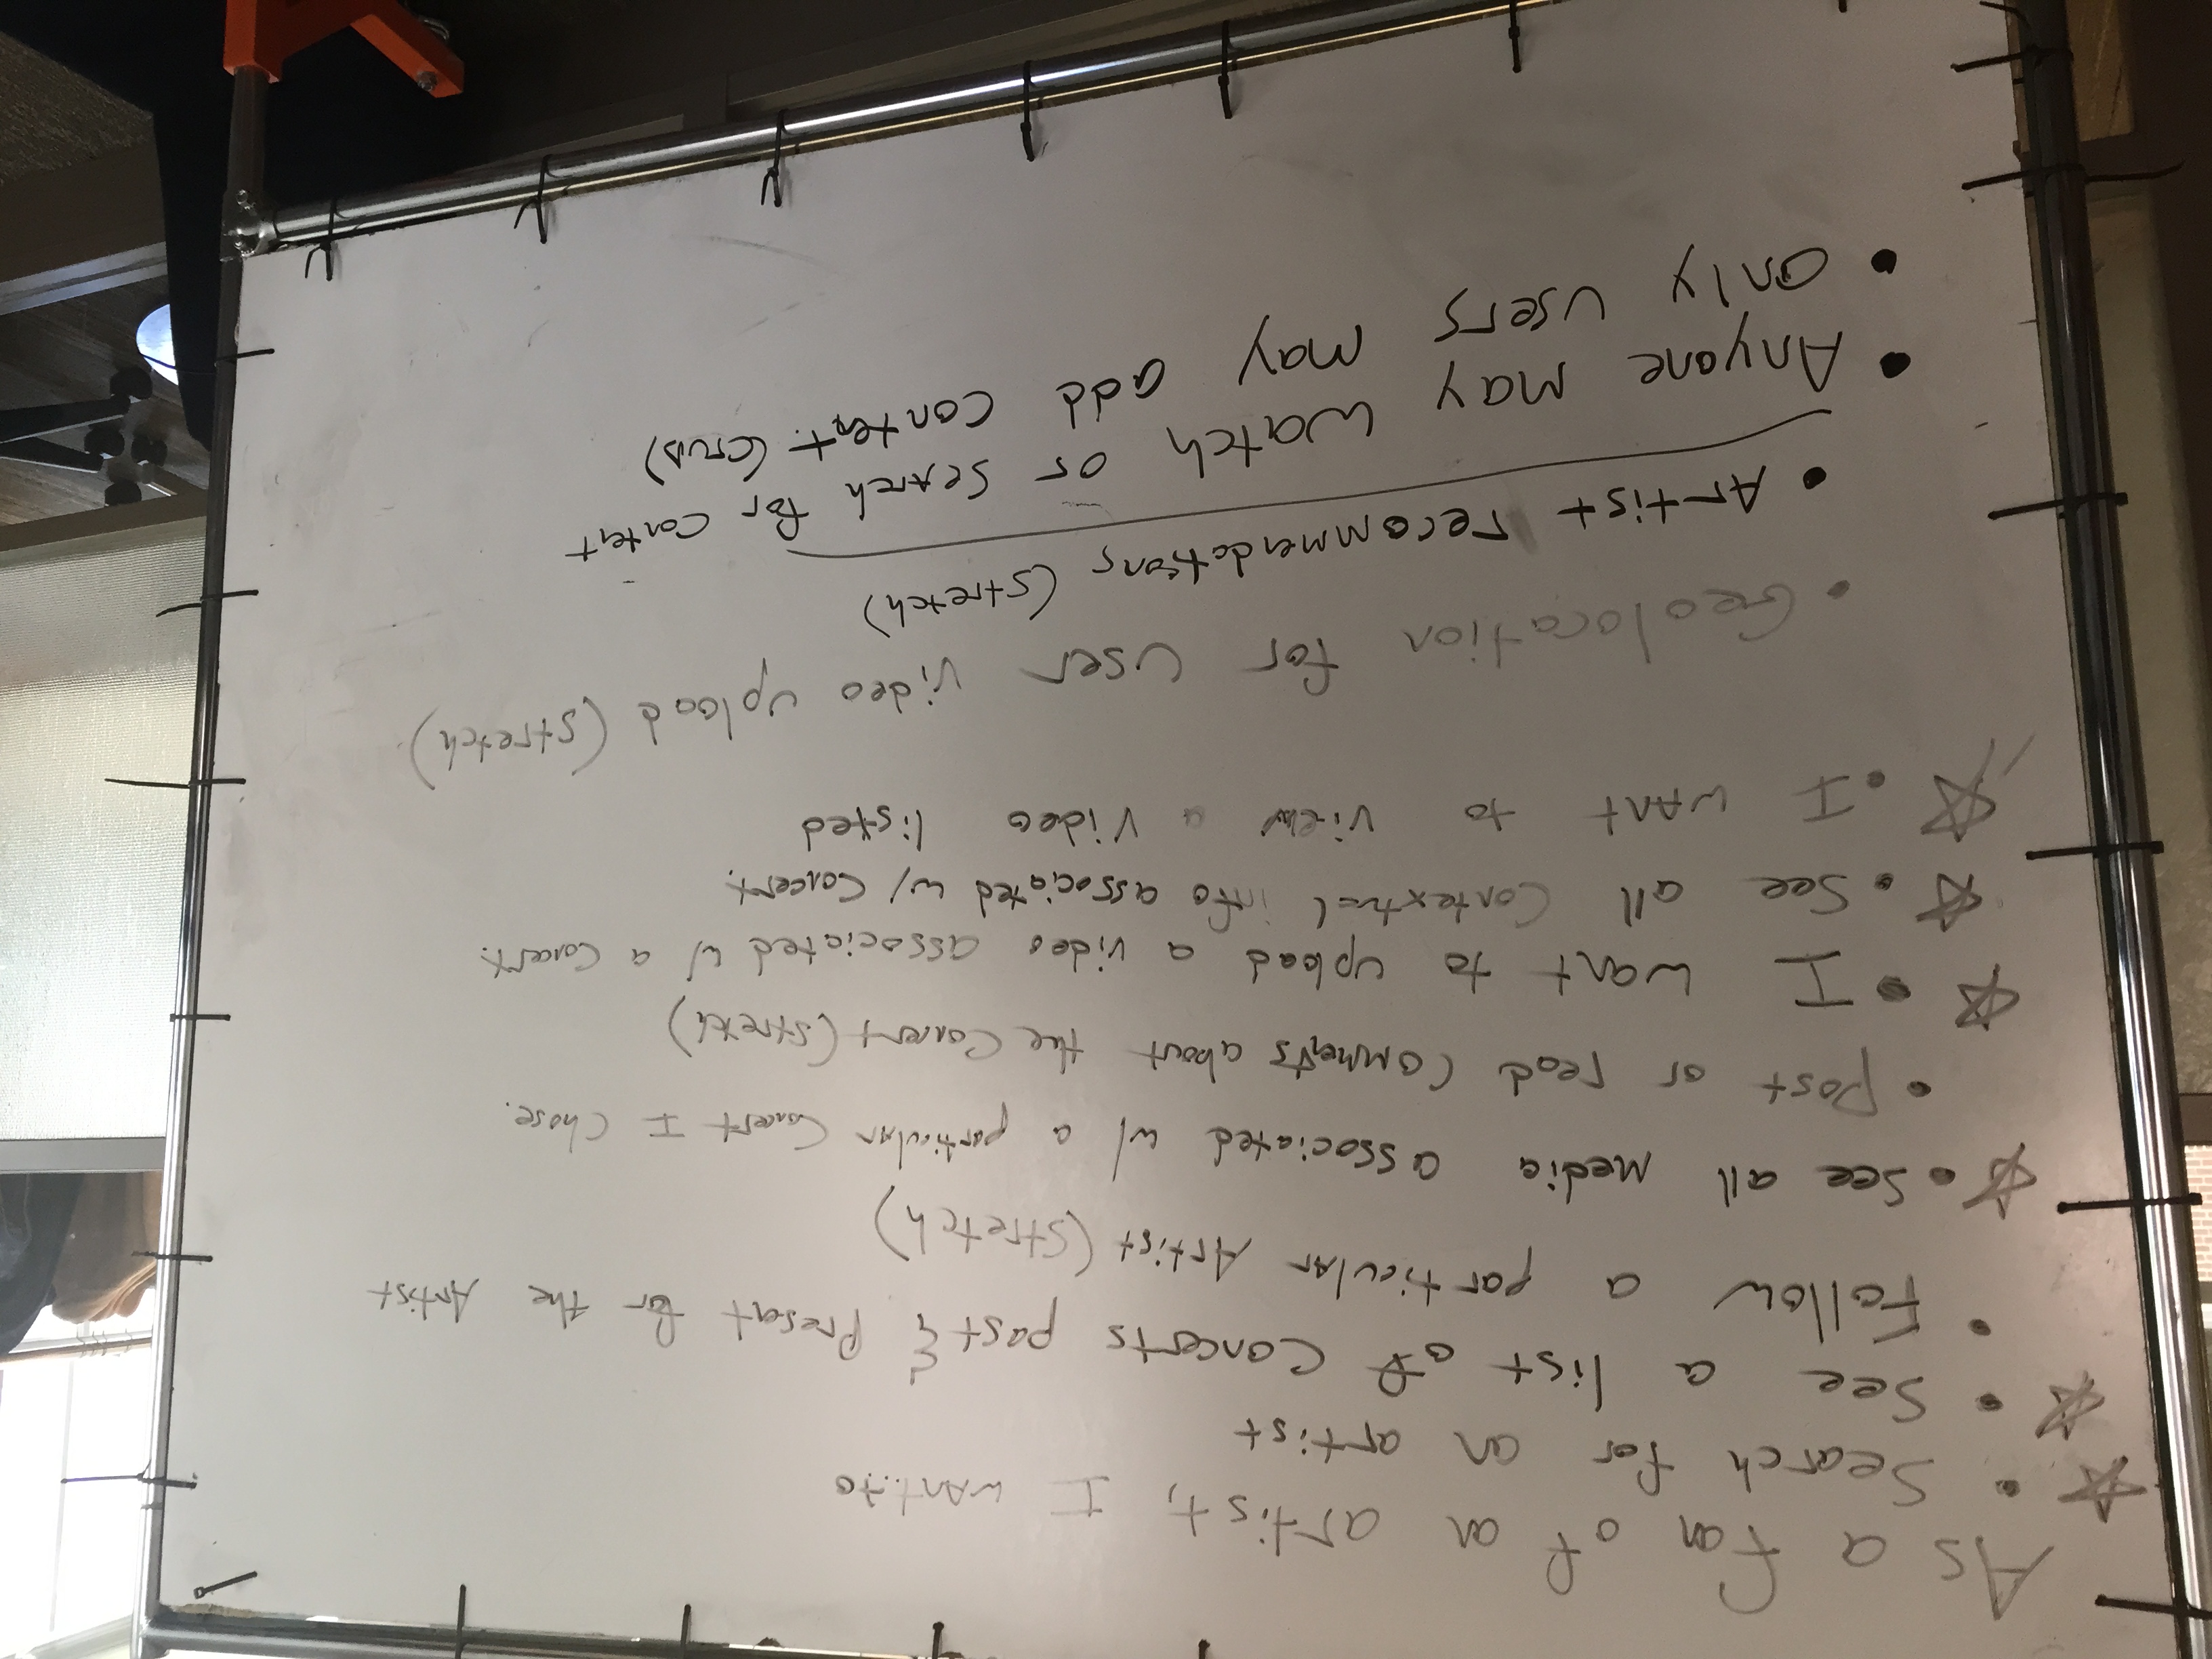 As a fan of an artist, I want to
☆ • Search for an artist
☆ • See a list of concerts past & Present for the Artist
• Follow a particular Artist (stretch)
☆ • See all Media associated w/ a particular Concert I chose.
• Post or read comments about the Concert (stretch)
☆ • I want to upload a video associated w/ a concert.
☆ • See all Contextual info associated w/ Concert.
☆ • I want to view a Video listed
• Geolocation for user video upload (stretch)
• Artist recommendations (stretch)
• Anyone may watch or search for content
• only users may add content. (CrUD)